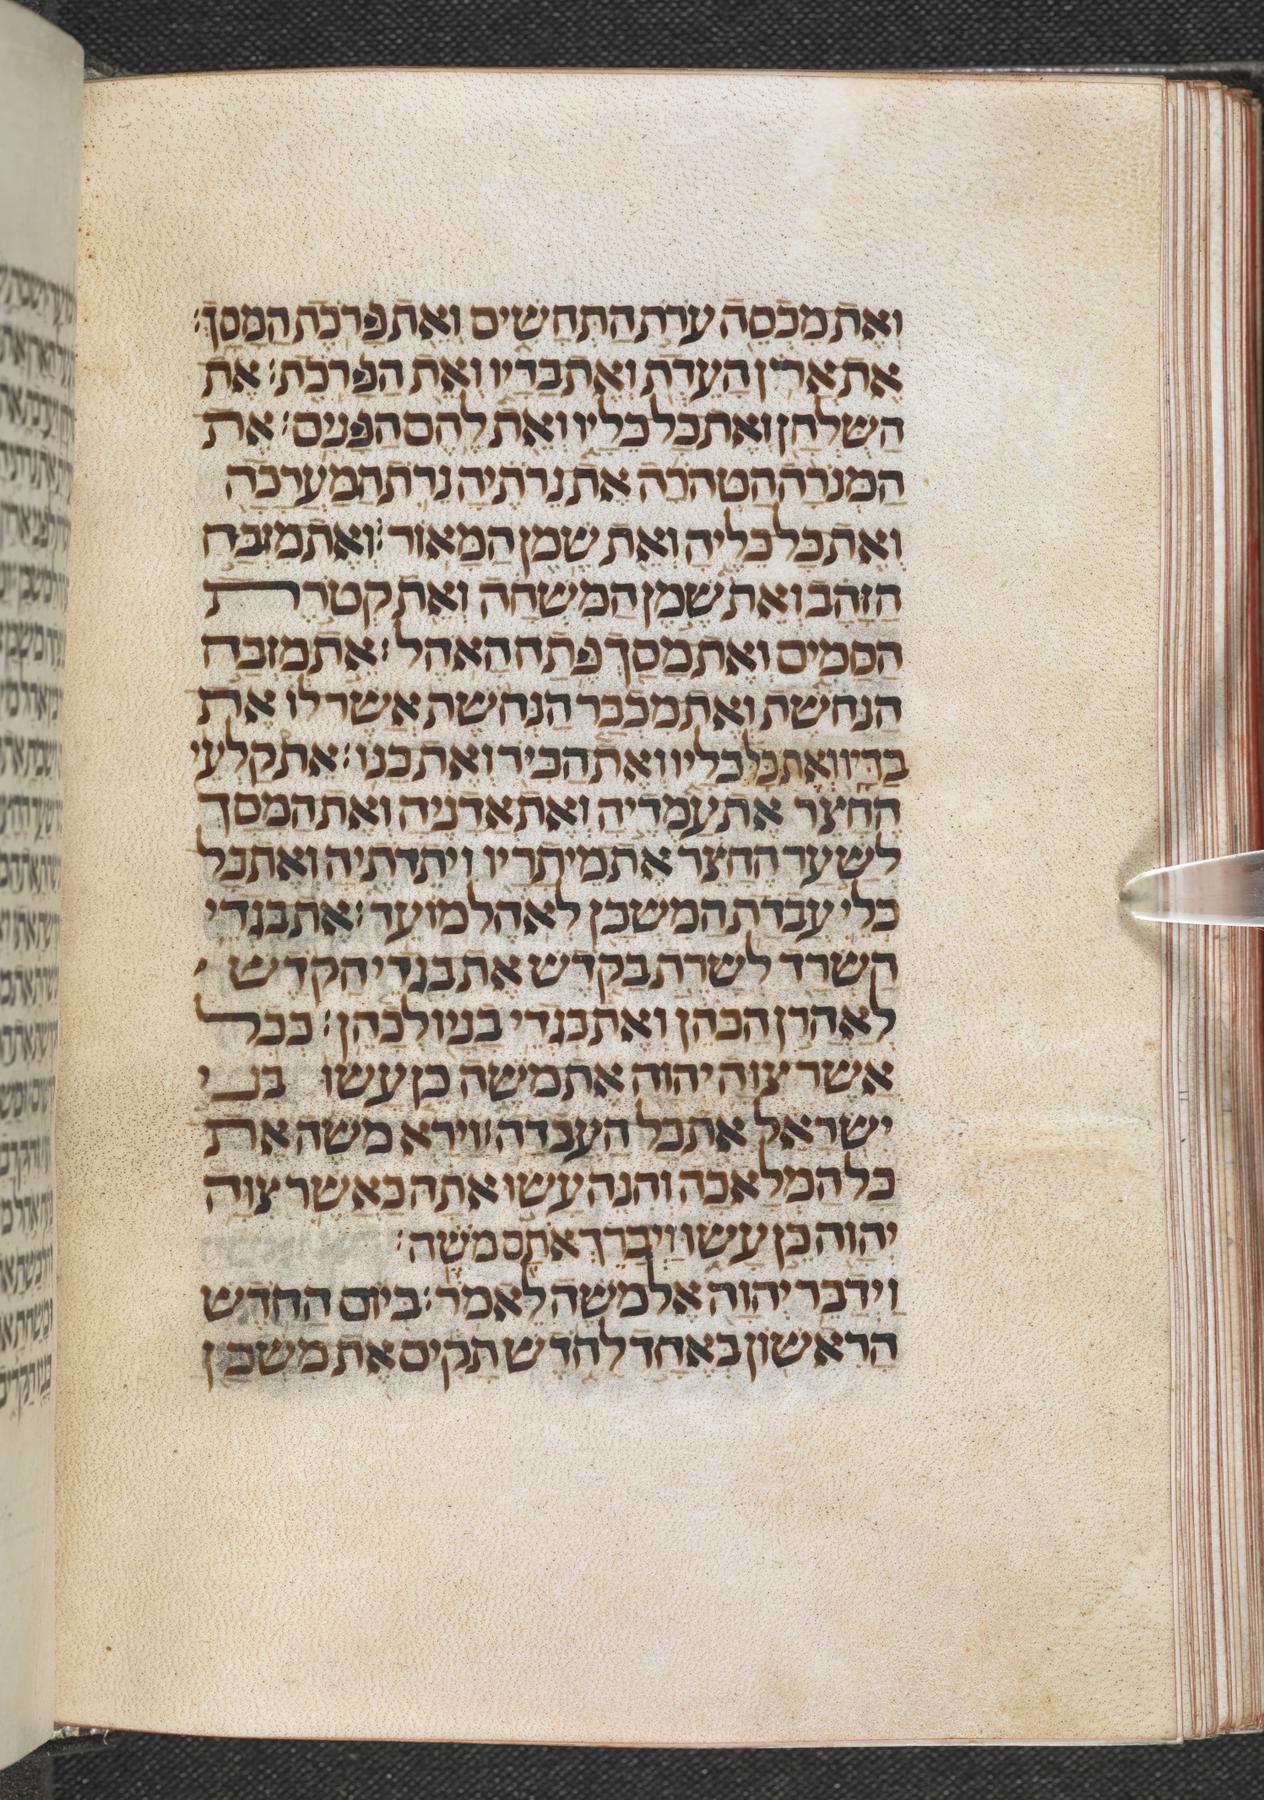 ואת מכסה ערת התחשים ואת פרכת המסך׃
את ארון העדת ואת בדיו ואת הפרכת׃ את
השלחן ואת כל כליו ואת לחם הפנים׃ את
המנרה הטהרה את נרתיה נרת המערכה
ואת כל כליה ואת שמן המאור׃ ואת מזבח
הזהב ואת שמן המשחה ואת קטרת
הסמים ואת מסך פתח האהל׃ את מזבח
הנחשת ואת מכבר הנחשת אשר לו את
בדיו ואת כל כליו ואת הכיר ואת כנו׃ את קלעי
החצר את עמדיה ואת אדניה ואת המסך
לשער החצר את מיתריו ויתדתיה ואת כל
כלי עבדת המשכן לאהל מועד׃ את בגדי
השרד לשרת בקדש את בגדי הקדש
לאהרן הכהן ואת בגדי בניו לכהן׃ ככל
אשר צוה יהוה את משה כן עשו בני
ישראל את כל העבדה׃ וירא משה את
כל המלאכה והנה עשו אתה כאשר צוה
יהוה כן עשו ויברך אתם משה׃
וידבר יהוה אל משה לאמר׃ ביום החדש
הראשון באחד לחדש תקים את משכן